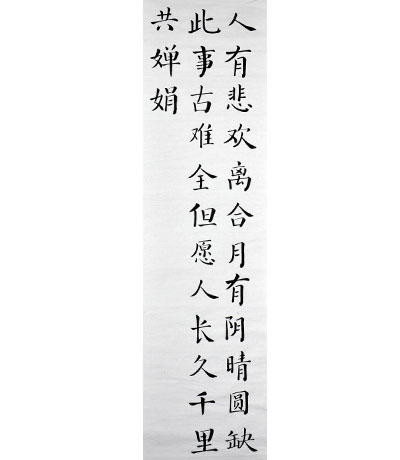 人有悲欢离合月有阴晴圆缺
此事古难全但愿人长久千里
共婵娟